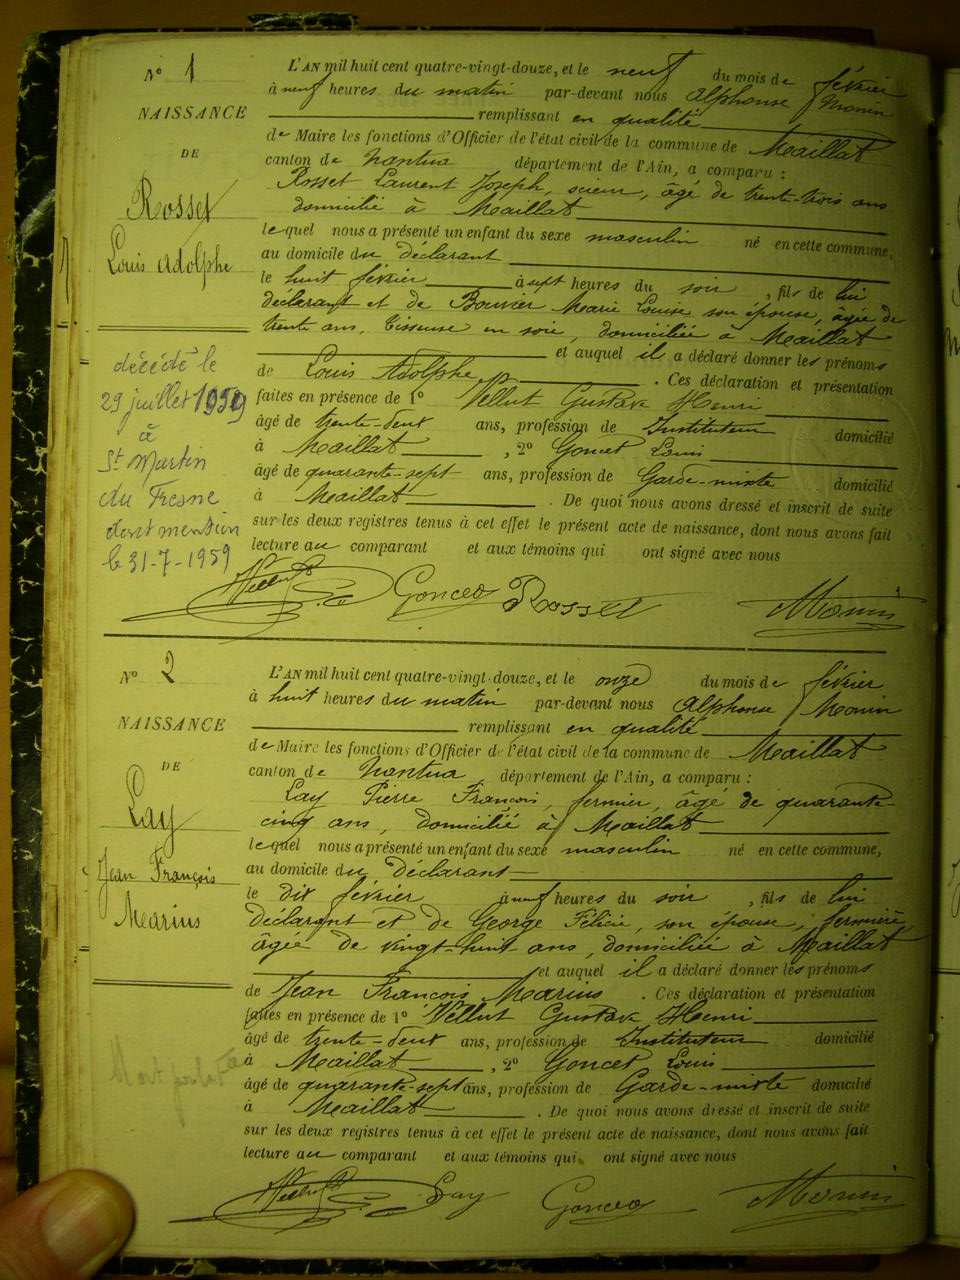 N° 1
NAISSANCE
DE
Rosset
Louis Adolphe
décédé le
29 juillet 1959
à
St Martin
du Fresne
dont mention
le 31-7-1959
L'AN mil huit cent quatre-vingt-douze, et le neuf du mois de février
à neuf heures du matin par-devant nous Alphonse Monin
remplissant en qualité
de Maire les fonctions d'Officier de l'état civil de la commune de Maillat
canton de Nantua département de l'Ain, a comparu :
Rosset Laurent Joseph, scieur, âgé de trente-trois ans
domicilié à Maillat
lequel nous a présenté un enfant du sexe masculin né en cette commune,
au domicile du déclarant
le huit février à sept heures du soir, fils de lui
déclarant et de Bouvier Marie Louise son épouse, âgée de
trente ans, tisseuse en soie, domiciliée à Maillat
et auquel il a déclaré donner les prénoms
de Louis Adolphe. Ces déclaration et présentation
faites en présence de 1° Vellut Gustave Henri
âgé de trente-deux ans, profession de Instituteur domicilié
à Maillat, 2° Goncet Louis
âgé de quarante-sept ans, profession de Garde-mixte domicilié
à Maillat. De quoi nous avons dressé et inscrit de suite
sur les deux registres tenus à cet effet le présent acte de naissance, dont nous avons fait
lecture au comparant et aux témoins qui ont signé avec nous
Vellut Goncet Rosset Monin
N° 2
NAISSANCE
DE
Lay
Jean François
Marius
L'AN mil huit cent quatre-vingt-douze, et le onze du mois de février
à huit heures du matin par-devant nous Alphonse Monin
remplissant en qualité
de Maire les fonctions d'Officier de l'état civil de la commune de Maillat
canton de Nantua, département de l'Ain, a comparu :
Lay Pierre François, fermier, âgé de quarante-
cinq ans, domicilié à Maillat
lequel nous a présenté un enfant du sexe masculin né en cette commune,
au domicile du déclarant
le dix février à neuf heures du soir, fils de lui
déclarant et de George Félicie, son épouse, fermière
âgée de vingt-huit ans, domiciliée à Maillat
et auquel il a déclaré donner les prénoms
de Jean François Marius. Ces déclaration et présentation
faites en présence de 1° Vellut Gustave Henri
âgé de trente-deux ans, profession de Instituteur domicilié
à Maillat, 2° Goncet Louis
âgé de quarante-sept ans, profession de Garde-mixte domicilié
à Maillat. De quoi nous avons dressé et inscrit de suite
sur les deux registres tenus à cet effet le présent acte de naissance, dont nous avons fait
lecture au comparant et aux témoins qui ont signé avec nous
Vellut Lay Goncet Monin